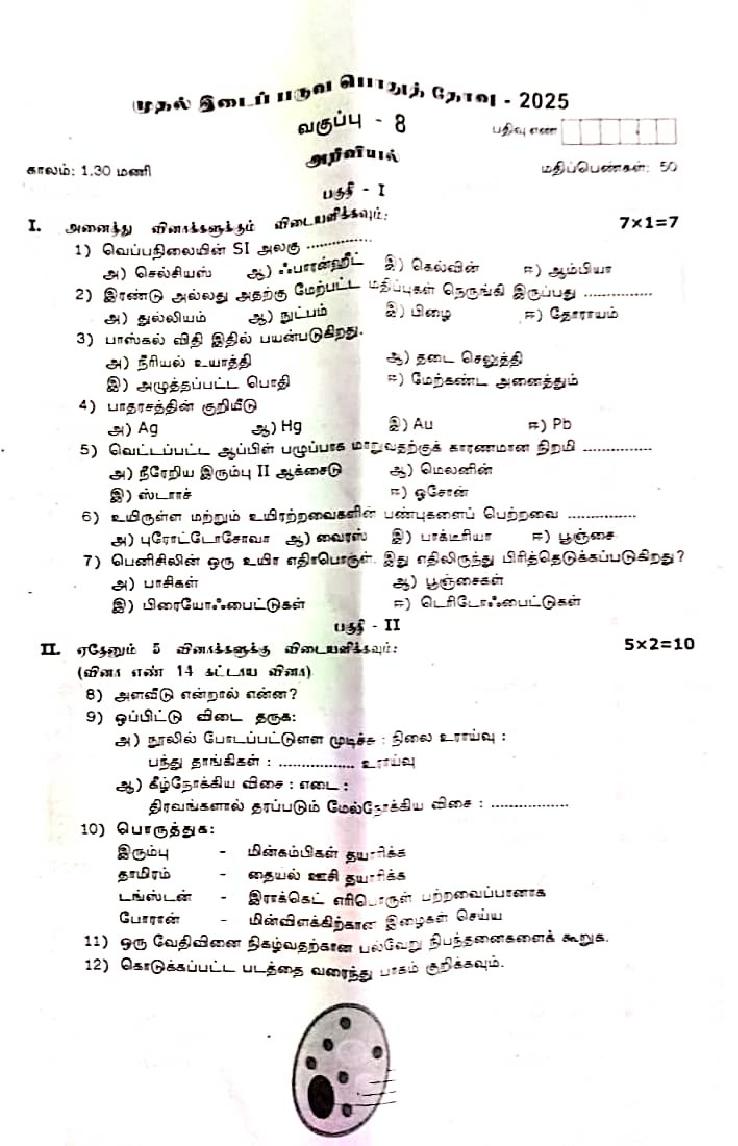 முதல் இடைப் பருவ பொதுத் தேர்வு - 2025
வகுப்பு - 8
பதிவு எண்
அறிவியல்
காலம்: 1.30 மணி
மதிப்பெண்கள்: 50
பகுதி - I
I. அனைத்து வினாக்களுக்கும் விடையளிக்கவும்: 7×1=7
1) வெப்பநிலையின் SI அலகு ...............
அ) செல்சியஸ் ஆ) ஃபாரன்ஹீட் இ) கெல்வின் ஈ) ஆம்பியர்
2) இரண்டு அல்லது அதற்கு மேற்பட்ட மதிப்புகள் நெருங்கி இருப்பது ...............
அ) துல்லியம் ஆ) நுட்பம் இ) பிழை ஈ) தோராயம்
3) பாஸ்கல் விதி இதில் பயன்படுகிறது.
அ) நீரியல் உயர்த்தி ஆ) தடை செலுத்தி
இ) அழுத்தப்பட்ட பொதி ஈ) மேற்கண்ட அனைத்தும்
4) பாதரசத்தின் குறியீடு
அ) Ag ஆ) Hg இ) Au ஈ) Pb
5) வெட்டப்பட்ட ஆப்பிள் பழுப்பாக மாறுவதற்குக் காரணமான நிறமி ...............
அ) நீரேறிய இரும்பு II ஆக்சைடு ஆ) மெலனின்
இ) ஸ்டார்ச் ஈ) ஓசோன்
6) உயிருள்ள மற்றும் உயிரற்றவைகளின் பண்புகளைப் பெற்றவை ...............
அ) புரோட்டோசோவா ஆ) வைரஸ் இ) பாக்டீரியா ஈ) பூஞ்சை
7) பெனிசிலின் ஒரு உயிர் எதிர்பொருள். இது எதிலிருந்து பிரித்தெடுக்கப்படுகிறது?
அ) பாசிகள் ஆ) பூஞ்சைகள்
இ) பிரையோஃபைட்டுகள் ஈ) டெரிடோஃபைட்டுகள்
பகுதி - II
II. ஏதேனும் 5 வினாக்களுக்கு விடையளிக்கவும்: 5×2=10
(வினா எண் 14 கட்டாய வினா)
8) அளவீடு என்றால் என்ன?
9) ஒப்பிட்டு விடை தருக:
அ) நூலில் போடப்பட்டுள்ள முடிச்சு : நிலை உராய்வு :
பந்து தாங்கிகள் : ................. உராய்வு
ஆ) கீழ்நோக்கிய விசை : எடை :
திரவங்களால் தரப்படும் மேல்நோக்கிய விசை : .................
10) பொருத்துக:
இரும்பு - மின்கம்பிகள் தயாரிக்க
தாமிரம் - தையல் ஊசி தயாரிக்க
டங்ஸ்டன் - இராக்கெட் எரிபொருள் பற்றவைப்பானாக
போரான் - மின்விளக்கிற்கான இழைகள் செய்ய
11) ஒரு வேதிவினை நிகழ்வதற்கான பல்வேறு நிபந்தனைகளைக் கூறுக.
12) கொடுக்கப்பட்ட படத்தை வரைந்து பாகம் குறிக்கவும்.